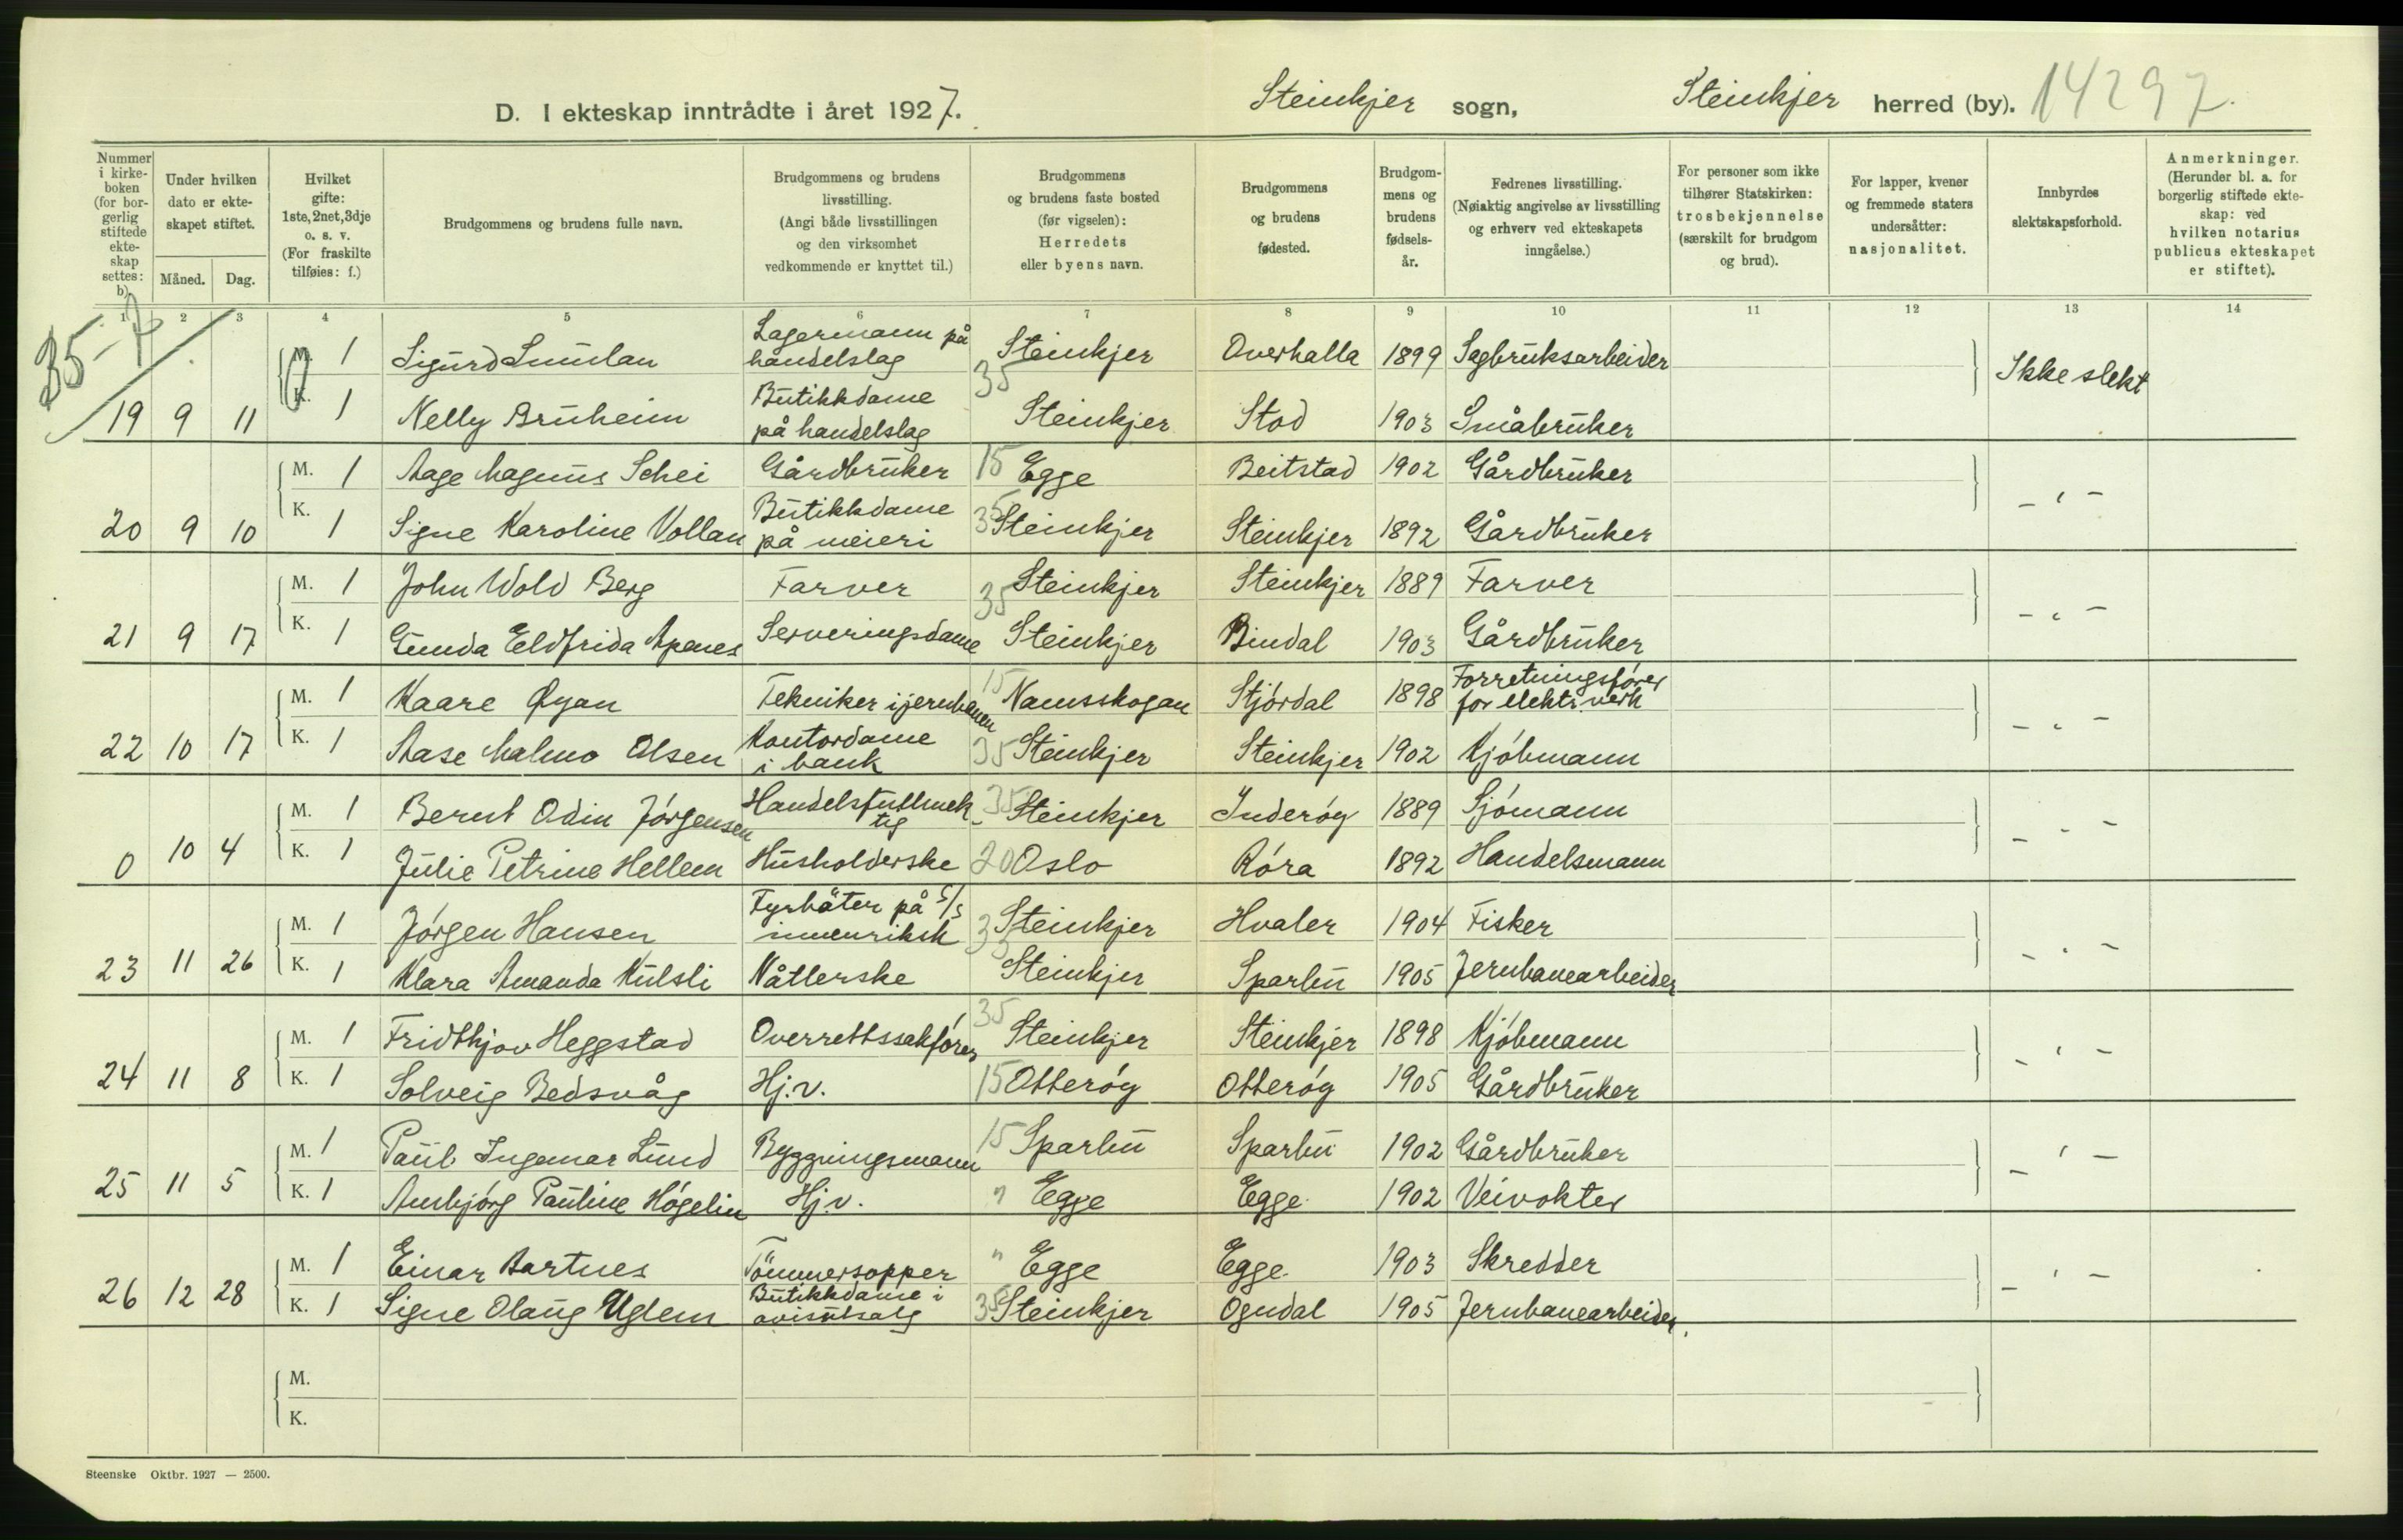 D. I ekteskap inntrådte i året 1927. Steinkjer sogn, Steinkjer herred (by). 14297.
Nummer i kirke-boken (for bor-gerlig stiftede ekte-skap settes: b).
Under hvilken dato er ekte-skapet stiftet.
Måned. Dag.
Hvilket gifte: 1ste, 2net, 3dje o. s. v. (For fraskilte tilføies: f.)
Brudgommens og brudens fulle navn.
Brudgommens og brudens livsstilling. (Angi både livsstillingen og den virksomhet vedkommende er knyttet til.)
Brudgommens og brudens faste bosted (før vigselen): Herredets eller byens navn.
Brudgommens og brudens fødested.
Brudgom-mens og brudens fødsels-år.
Fedrenes livsstilling. (Nøiaktig angivelse av livsstilling og erhverv ved ekteskapets inngåelse.)
For personer som ikke tilhører Statskirken: trosbekjennelse (særskilt for brudgom og brud).
For lapper, kvener og fremmede staters undersåtter: nasjonalitet.
Innbyrdes slektskapsforhold.
Anmerkninger. (Herunder bl. a. for borgerlig stiftede ekte-skap: ved hvilken notarius publicus ekteskapet er stiftet).
1 2 3 4 5 6 7 8 9 10 11 12 13 14
35-7
M. 1 Sigurd Smulan Lagermann på handelslag Steinkjer Overhalla 1899 Sagbruksarbeider Ikke slekt
35
19 9 11 K. 1 Nelly Bruheim Butikkdame på handelslag Steinkjer Stod 1903 Småbruker
M. 1 Aage Magnus Schei Gårdbruker 15 Egge Beitstad 1902 Gårdbruker
20 9 10 K. 1 Signe Karoline Vollan Butikkdame på meieri 35 Steinkjer Steinkjer 1892 Gårdbruker - " -
M. 1 John Wold Berg Farver 35 Steinkjer Steinkjer 1889 Farver
21 9 17 K. 1 Gunda Eldfrida Apenes Serveringsdame Steinkjer Bindal 1903 Gårdbruker - " -
M. 1 Kaare Øyan Tekniker i jernbanen 15 Namsskogan Stjórdal 1898 Forretningsfører for elektr. verk
22 10 17 K. 1 Aase Malmo Olsen Kontordame i bank 35 Steinkjer Steinkjer 1902 Kjóbmann - " -
M. 1 Bernt Odin Jórgensen Handelsfullmektig 35 Steinkjer Inderóy 1889 Sjómann
0 10 4 K. 1 Julie Petrine Hellem Husholderske 20 Oslo Róra 1892 Handelsmann - " -
M. 1 Jórgen Hansen Fyrbøter på S/S innenriksk 35 Steinkjer Hvaler 1904 Fisker
23 11 26 K. 1 Klara Amanda Kulsli Nåtlerske Steinkjer Sparbu 1905 Jernbanearbeider - " -
M. 1 Fridthjov Heggstad Overrettssakfórer 35 Steinkjer Steinkjer 1898 Kjóbmann
24 11 8 K. 1 Solveig Bedsvåg Hj.v. 15 Otteróy Otteróy 1905 Gårdbruker - " -
M. 1 Paul Ingemar Lund Bygningsmann 15 Sparbu Sparbu 1902 Gårdbruker
25 11 5 K. 1 Ansbjórg Pauline Hógelin Hj.v. " Egge Egge 1902 Veivokter - " -
M. 1 Einar Bartnes Tömmersopper " Egge Egge 1903 Skredder
26 12 28 K. 1 Signe Olaug Uglem Butikkdame i avisutsalg 35 Steinkjer Ogndal 1905 Jernbanearbeider. - " -
M.
K.
Steenske Oktbr. 1927 — 2500.